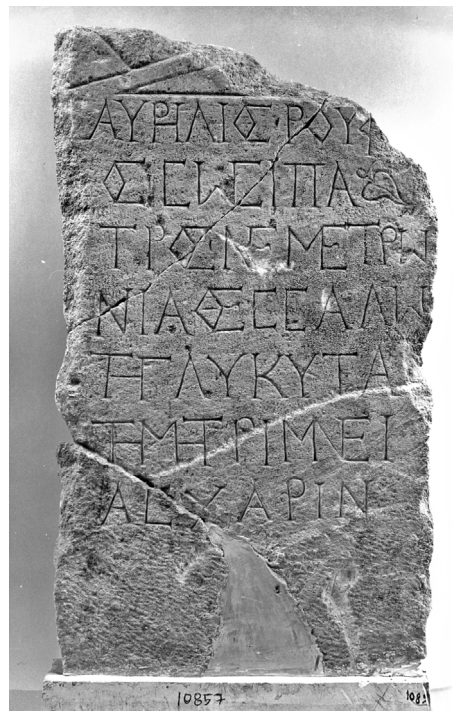 ΑΥΡΙΛΙΟΣ ΡΟΥΦ
ΟΣ ΣΩΣΙΠΑ
ΤΡΟΣ ΚΕ ΜΕΤΡΩ
ΝΙΑ ΘΕΣΣΑΛΩ
ΤΗ ΓΛΥΚΥΤΑ
ΤΗ ΜΗΤΡΙ ΜΝΕΙ
ΑΣ ΧΑΡΙΝ
10857